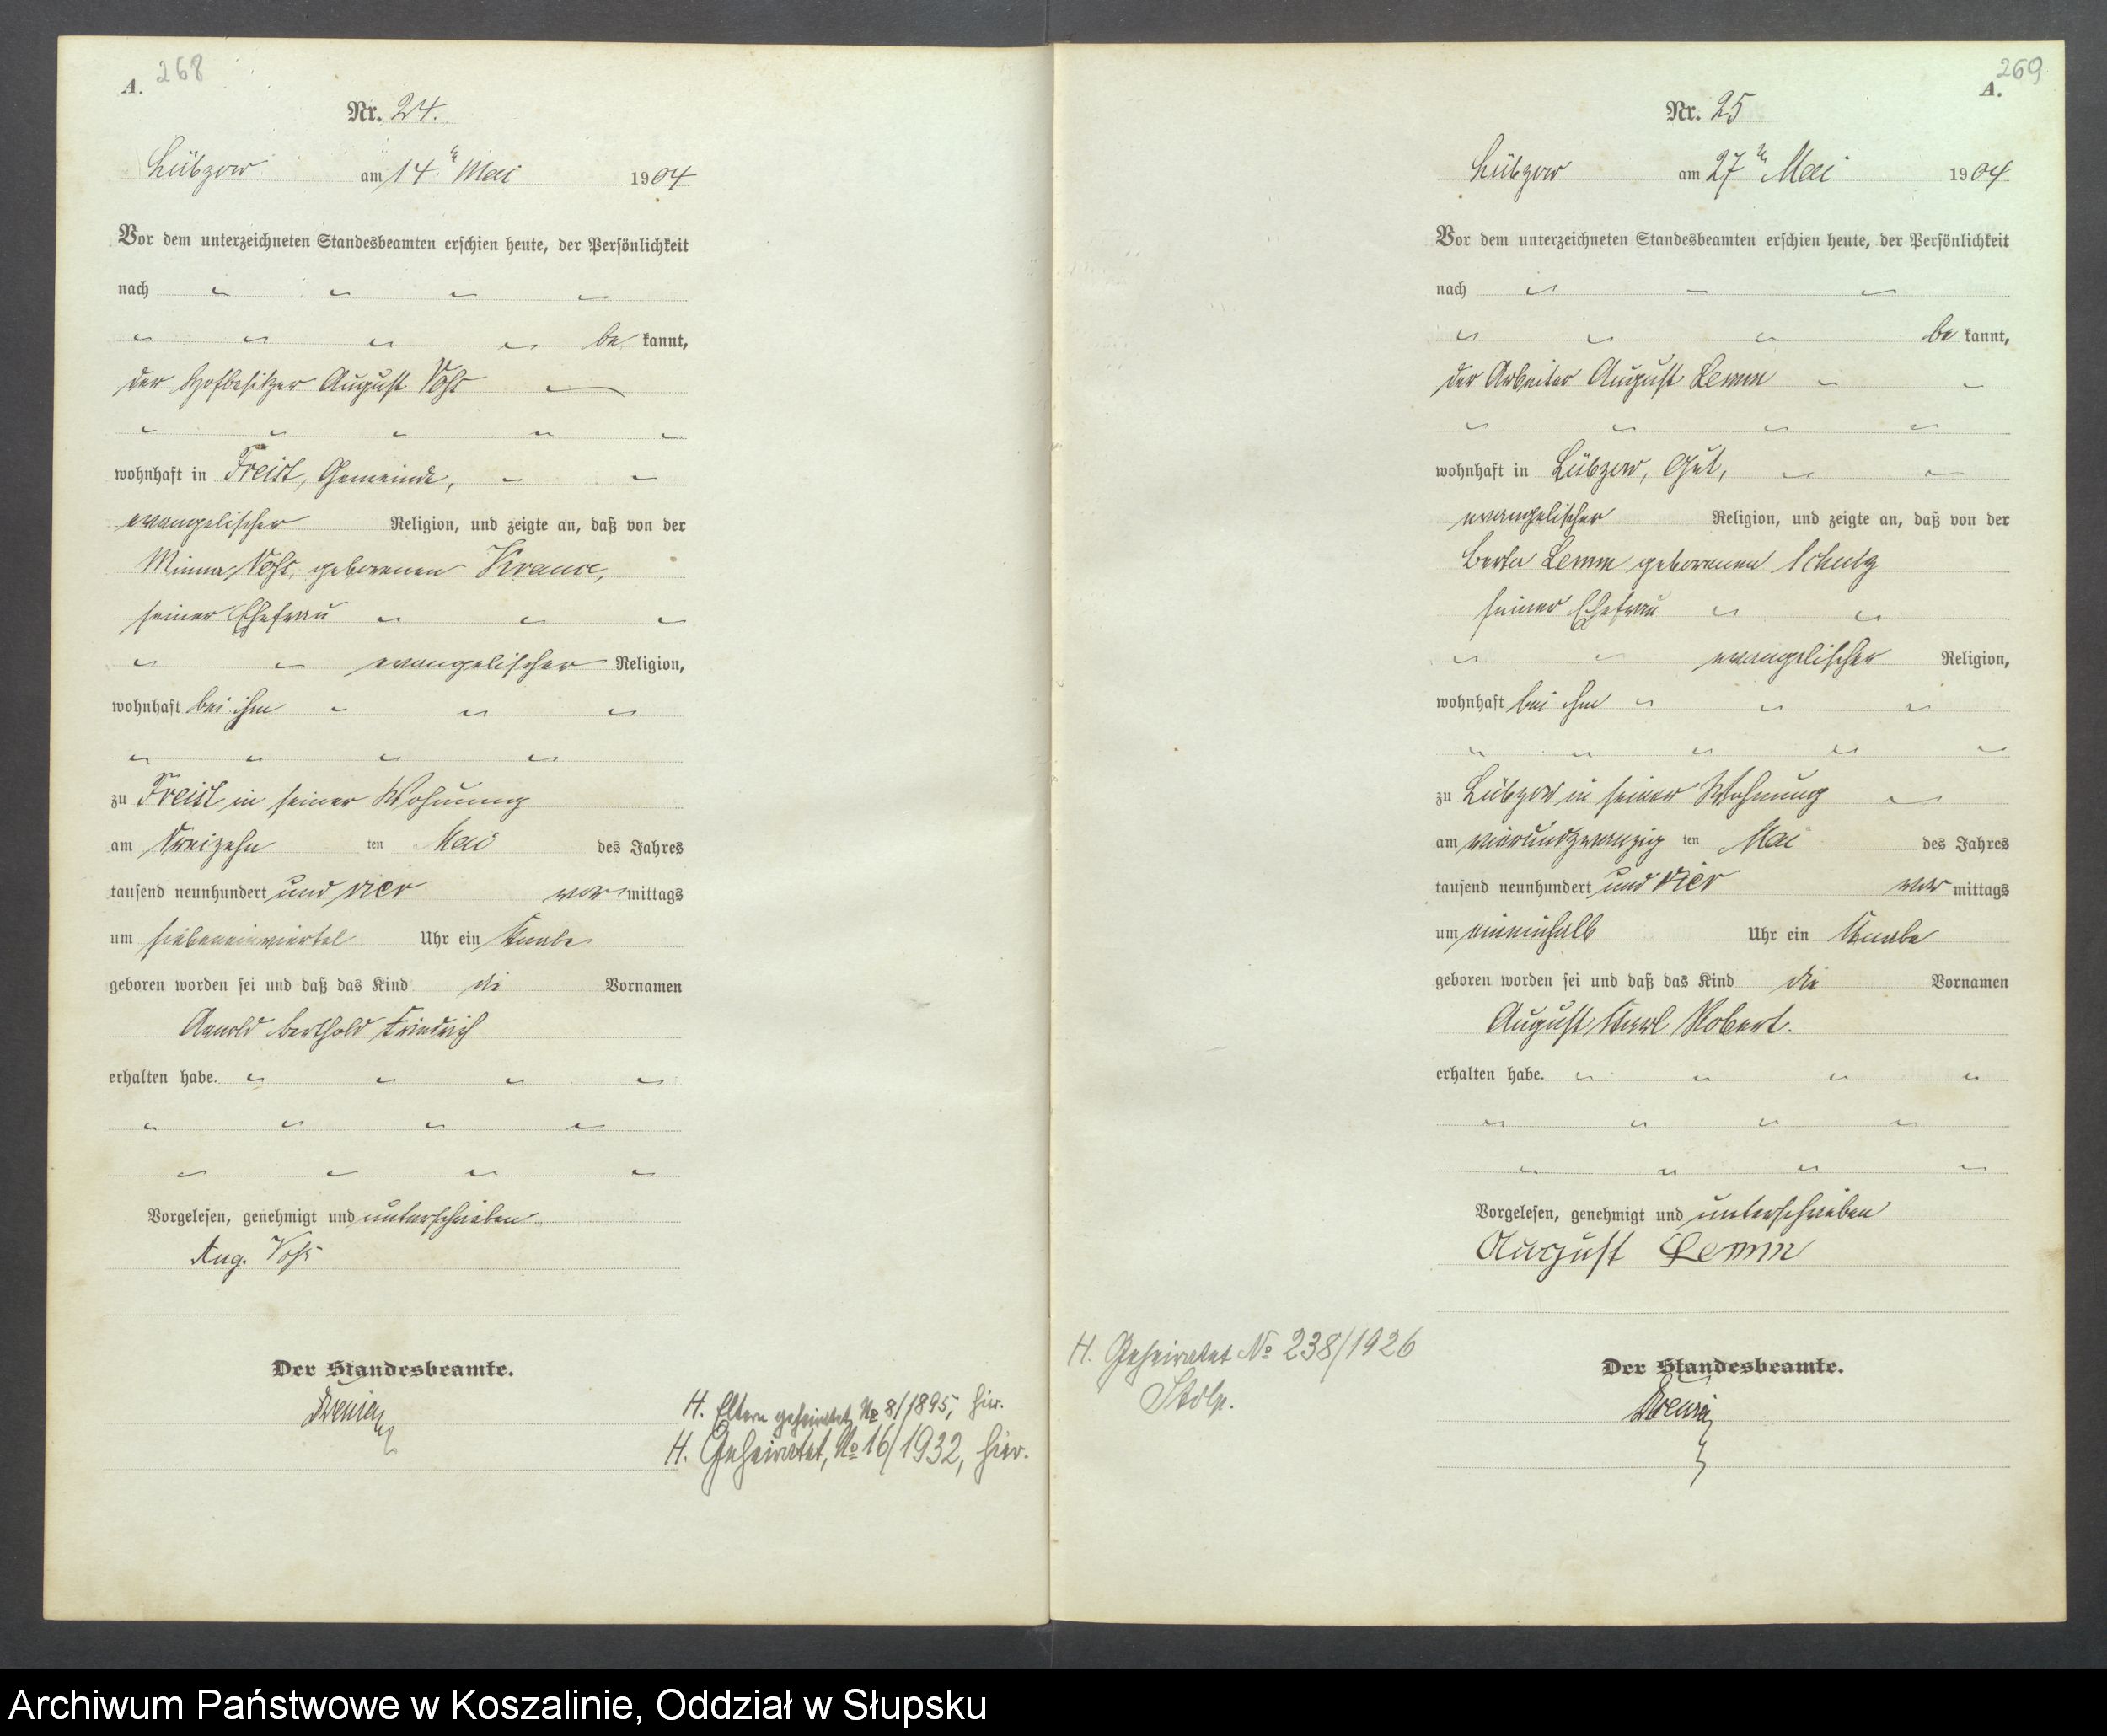 268
A.
Nr. 24.
Lübzow am 14ten Mai 1904
Vor dem unterzeichneten Standesbeamten erschien heute, der Persönlichkeit
nach
be kannt,
der Hofbesitzer August Voß
wohnhaft in Freist, Gemeinde,
evangelischer Religion, und zeigte an, daß von der
Minna Voß, geborenen
seiner Ehefrau
evangelischer Religion,
wohnhaft bei ihm
zu Freist in seiner Wohnung
am dreizehn ten Mai des Jahres
tausend neunhundert und vier vor mittags
um siebeneinviertel Uhr ein Knabe
geboren worden sei und daß das Kind die Vornamen
Arnold Berthold Friedrich
erhalten habe.
Vorgelesen, genehmigt und unterschrieben
Aug. Voß
Der Standesbeamte.
H. Eltern geheiratet № 8/1895, hier.
H. Geheiratet, № 16/1932, hier.
269
A.
Nr. 25
Lübzow am 27ten Mai 1904
Vor dem unterzeichneten Standesbeamten erschien heute, der Persönlichkeit
nach
be kannt,
der Arbeiter August Lemm
wohnhaft in Lübzow, Gut,
evangelischer Religion, und zeigte an, daß von der
Berta Lemm geborenen Schulz
seiner Ehefrau
evangelischer Religion,
wohnhaft bei ihm
zu Lübzow in seiner Wohnung
am vierundzwanzig ten Mai des Jahres
tausend neunhundert und vier vor mittags
um eineinhalb Uhr ein Knabe
geboren worden sei und daß das Kind die Vornamen
August Karl Robert.
erhalten habe.
Vorgelesen, genehmigt und unterschrieben
August Lemm
H. Geheiratet № 238/1926
Stolp.
Der Standesbeamte.
Archiwum Państwowe w Koszalinie, Oddział w Słupsku